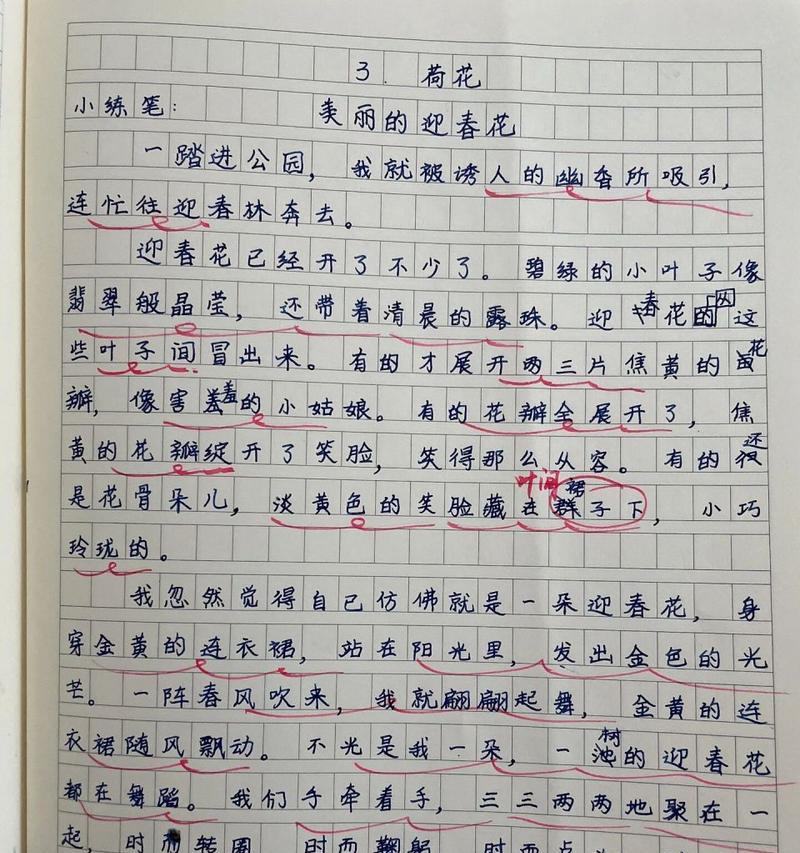 3. 荷花
小练笔: 美丽的迎春花
一踏进公园，我就被诱人的幽香所吸引，
连忙往迎春林奔去。
迎春花已经开了不少了。碧绿的小叶子像
翡翠般晶莹，还带着清晨的露珠。迎春花从这
些叶子间冒出来。有的才展开两三片焦黄的花
瓣，像害羞的小姑娘。有的花瓣全展开了，焦
黄的花瓣绽开了笑脸，笑得那么从容。有的还
是花骨朵儿，淡黄色的笑脸藏在裙子下，小巧
叶间
玲珑的。
我忽然觉得自己仿佛就是一朵迎春花，身
穿金黄的连衣裙，站在阳光里，发出金色的光
芒。一阵春风吹来，我就翩翩起舞，金黄的连
衣裙随风飘动。不光是我一朵，一树的迎春花
都在舞蹈。我们手牵着手，三三两两地聚在一
起，时而转圈 时而鞠躬 时而点